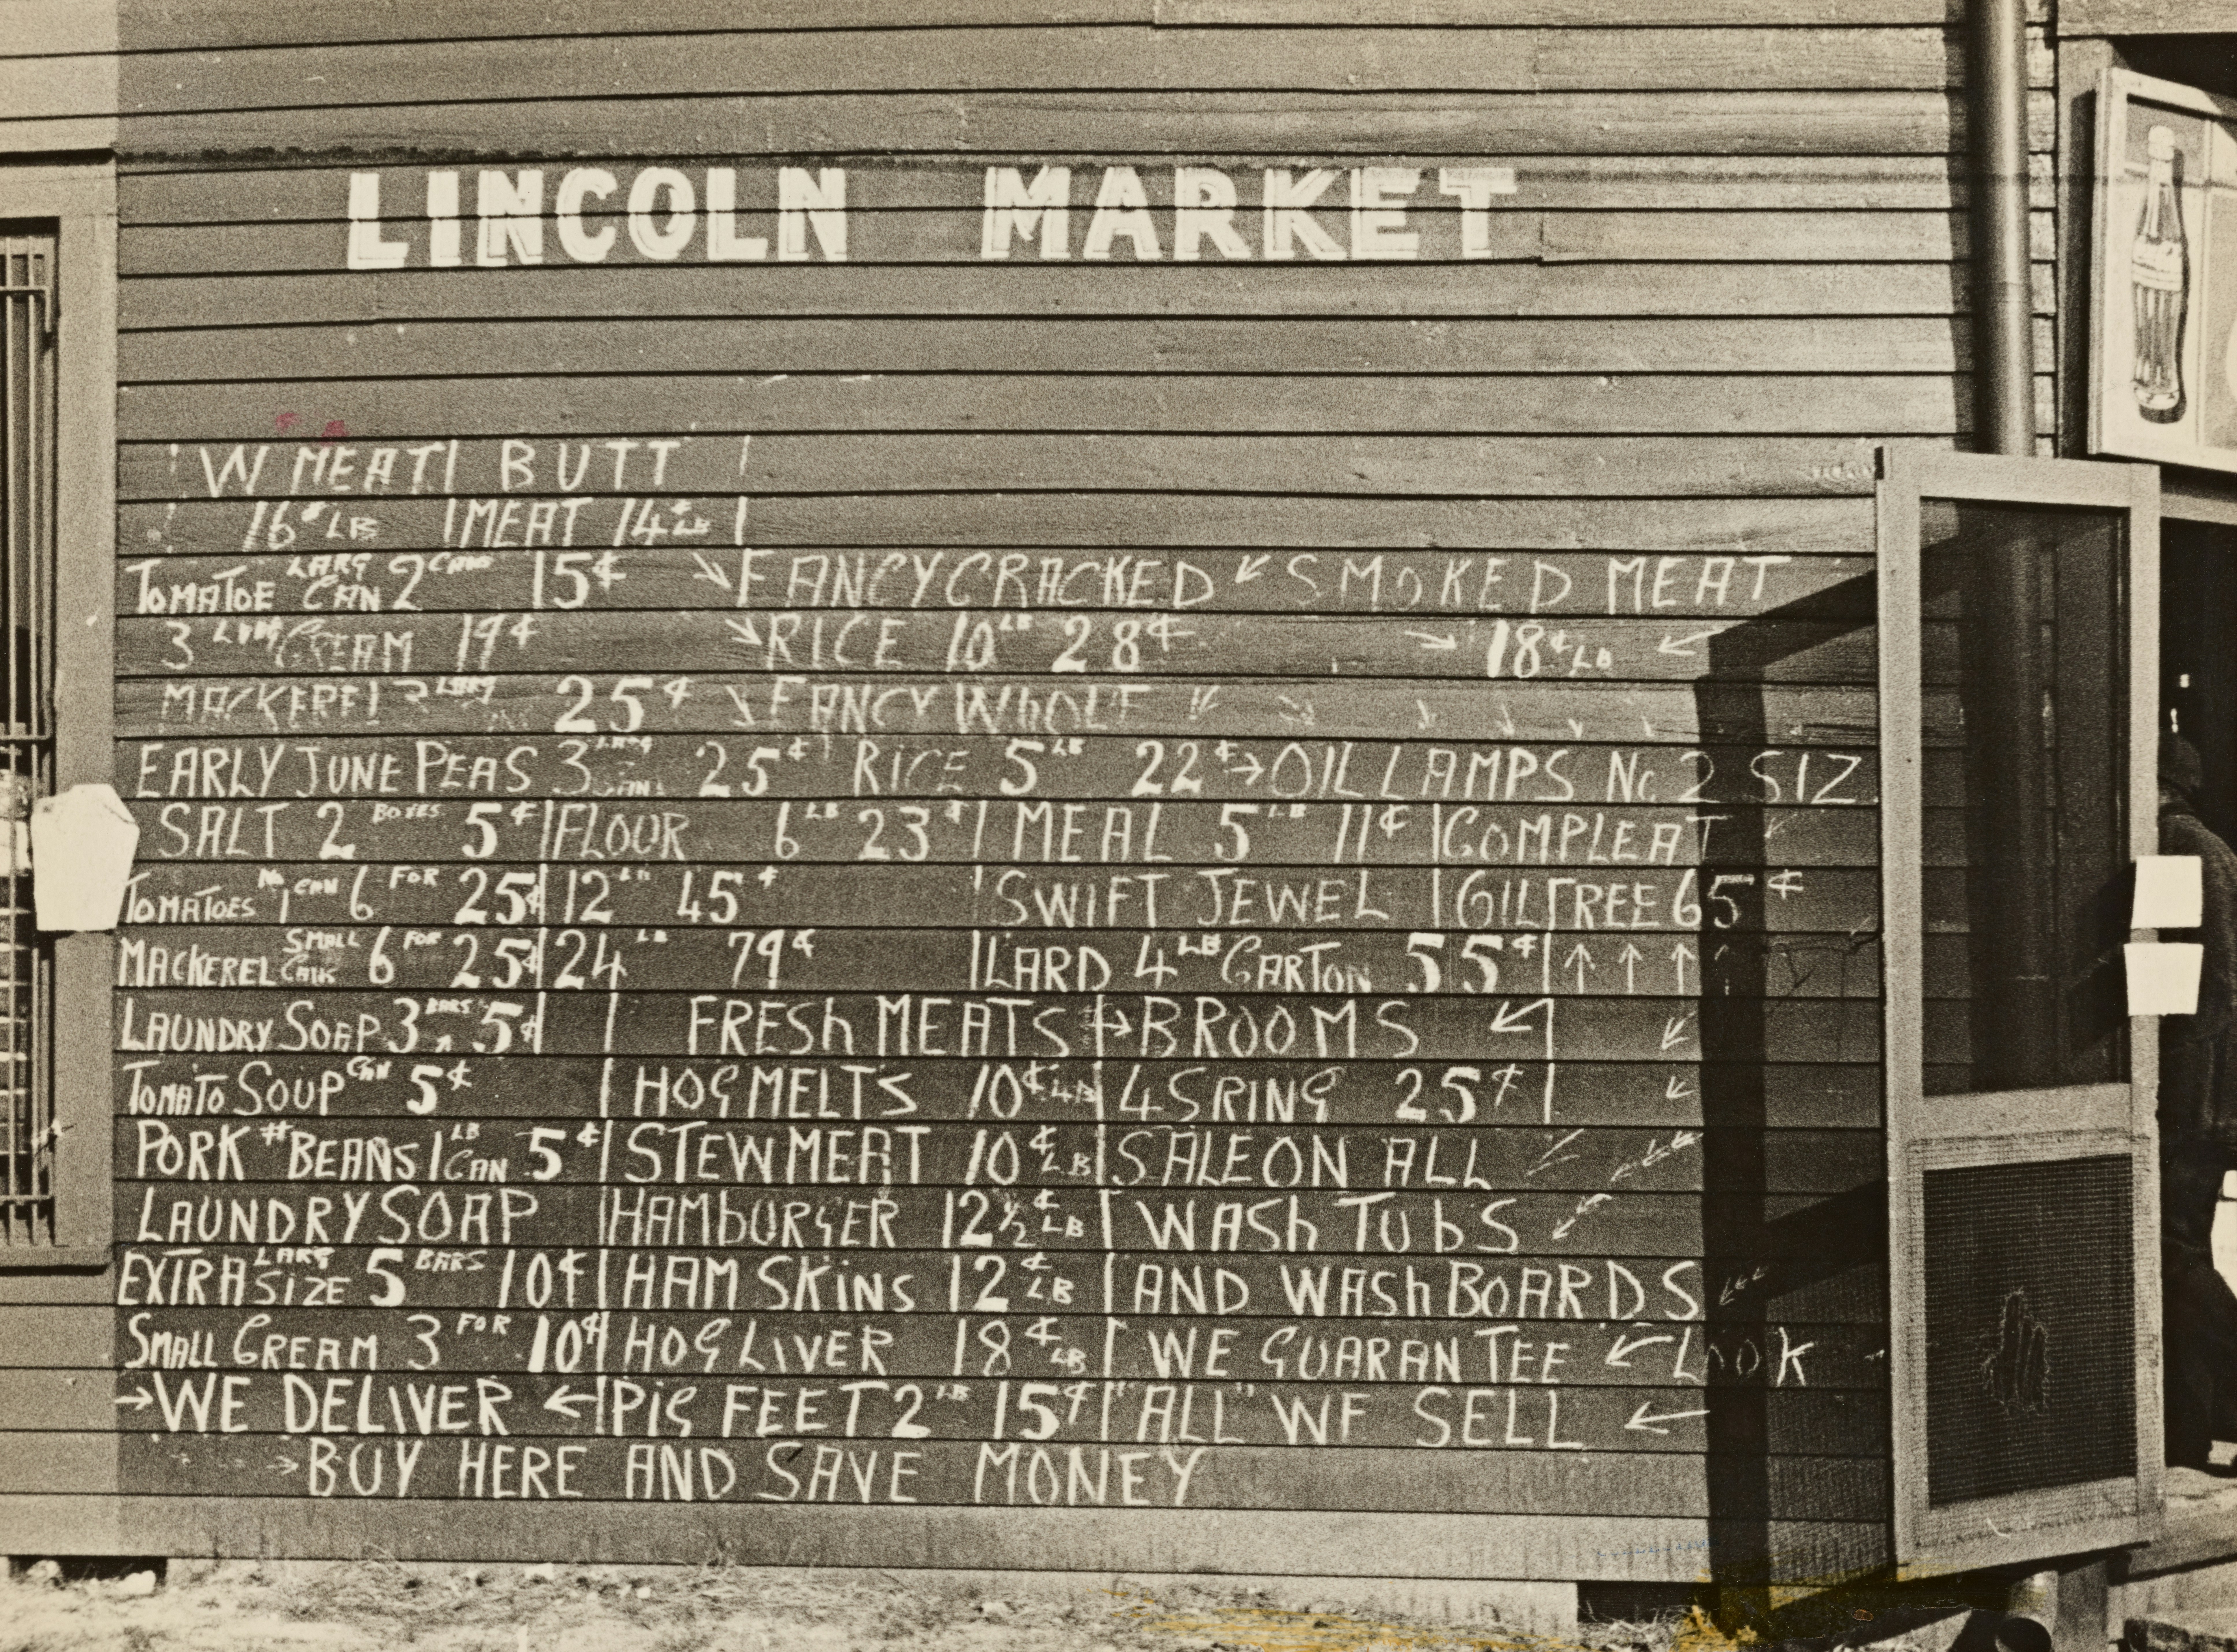 LINCOLN MARKET
W MEAT | BUTT |
16¢ LB | MEAT 14¢ LB |
TOMATOE LARG CAN 2 CANS 15¢ ↘ FANCY CRACKED ↙ SMOKED MEAT
3 LARG CREAM 19¢ ↘ RICE 10 LB 28¢ → 18¢ LB ←
MACKEREL 3 LARG 25¢ ↘ FANCY WhOLE ↙
EARLY JUNE PEAS 3 LARG CANS 25¢ RICE 5 LB 22¢ → OIL LAMPS No. 2 SIZ
SALT 2 BOXES 5¢ | FLOUR 6 LB 23¢ | MEAL 5 LB 11¢ | COMPLEAT
TOMATOES No 1 CAN 6 FOR 25¢ | 12 LB 45¢ | SWIFT JEWEL | GILTREE 65¢
MACKEREL SMALL 6 FOR 25¢ | 24 LB 79¢ | LARD 4 LB CARTON 55¢ | ↑ ↑ ↑ ↑
LAUNDRY SOAP 3 BARS 5¢ | | FRESh MEATS → BROOMS ↙ |
TOMATO SOUP CAN 5¢ | HOG MELTS 10¢ LB | 4 SRING 25¢ |
PORK # BEANS 1 LB CAN 5¢ | STEW MEAT 10¢ LB | SALE ON ALL
LAUNDRY SOAP | HAMbURGER 12½¢ LB | WASh TUbS
EXTRA LARG SIZE 5 BARS 10¢ | HAM SKiNS 12¢ LB | AND WASh BOARDS
SMALL CREAM 3 FOR 10¢ | HOG LIVER 18¢ LB | WE GUARANTEE ← LOOK
→ WE DELIVER ← | PiG FEET 2 LB 15¢ | "ALL" WE SELL ←
→ BUY HERE AND SAVE MONEY